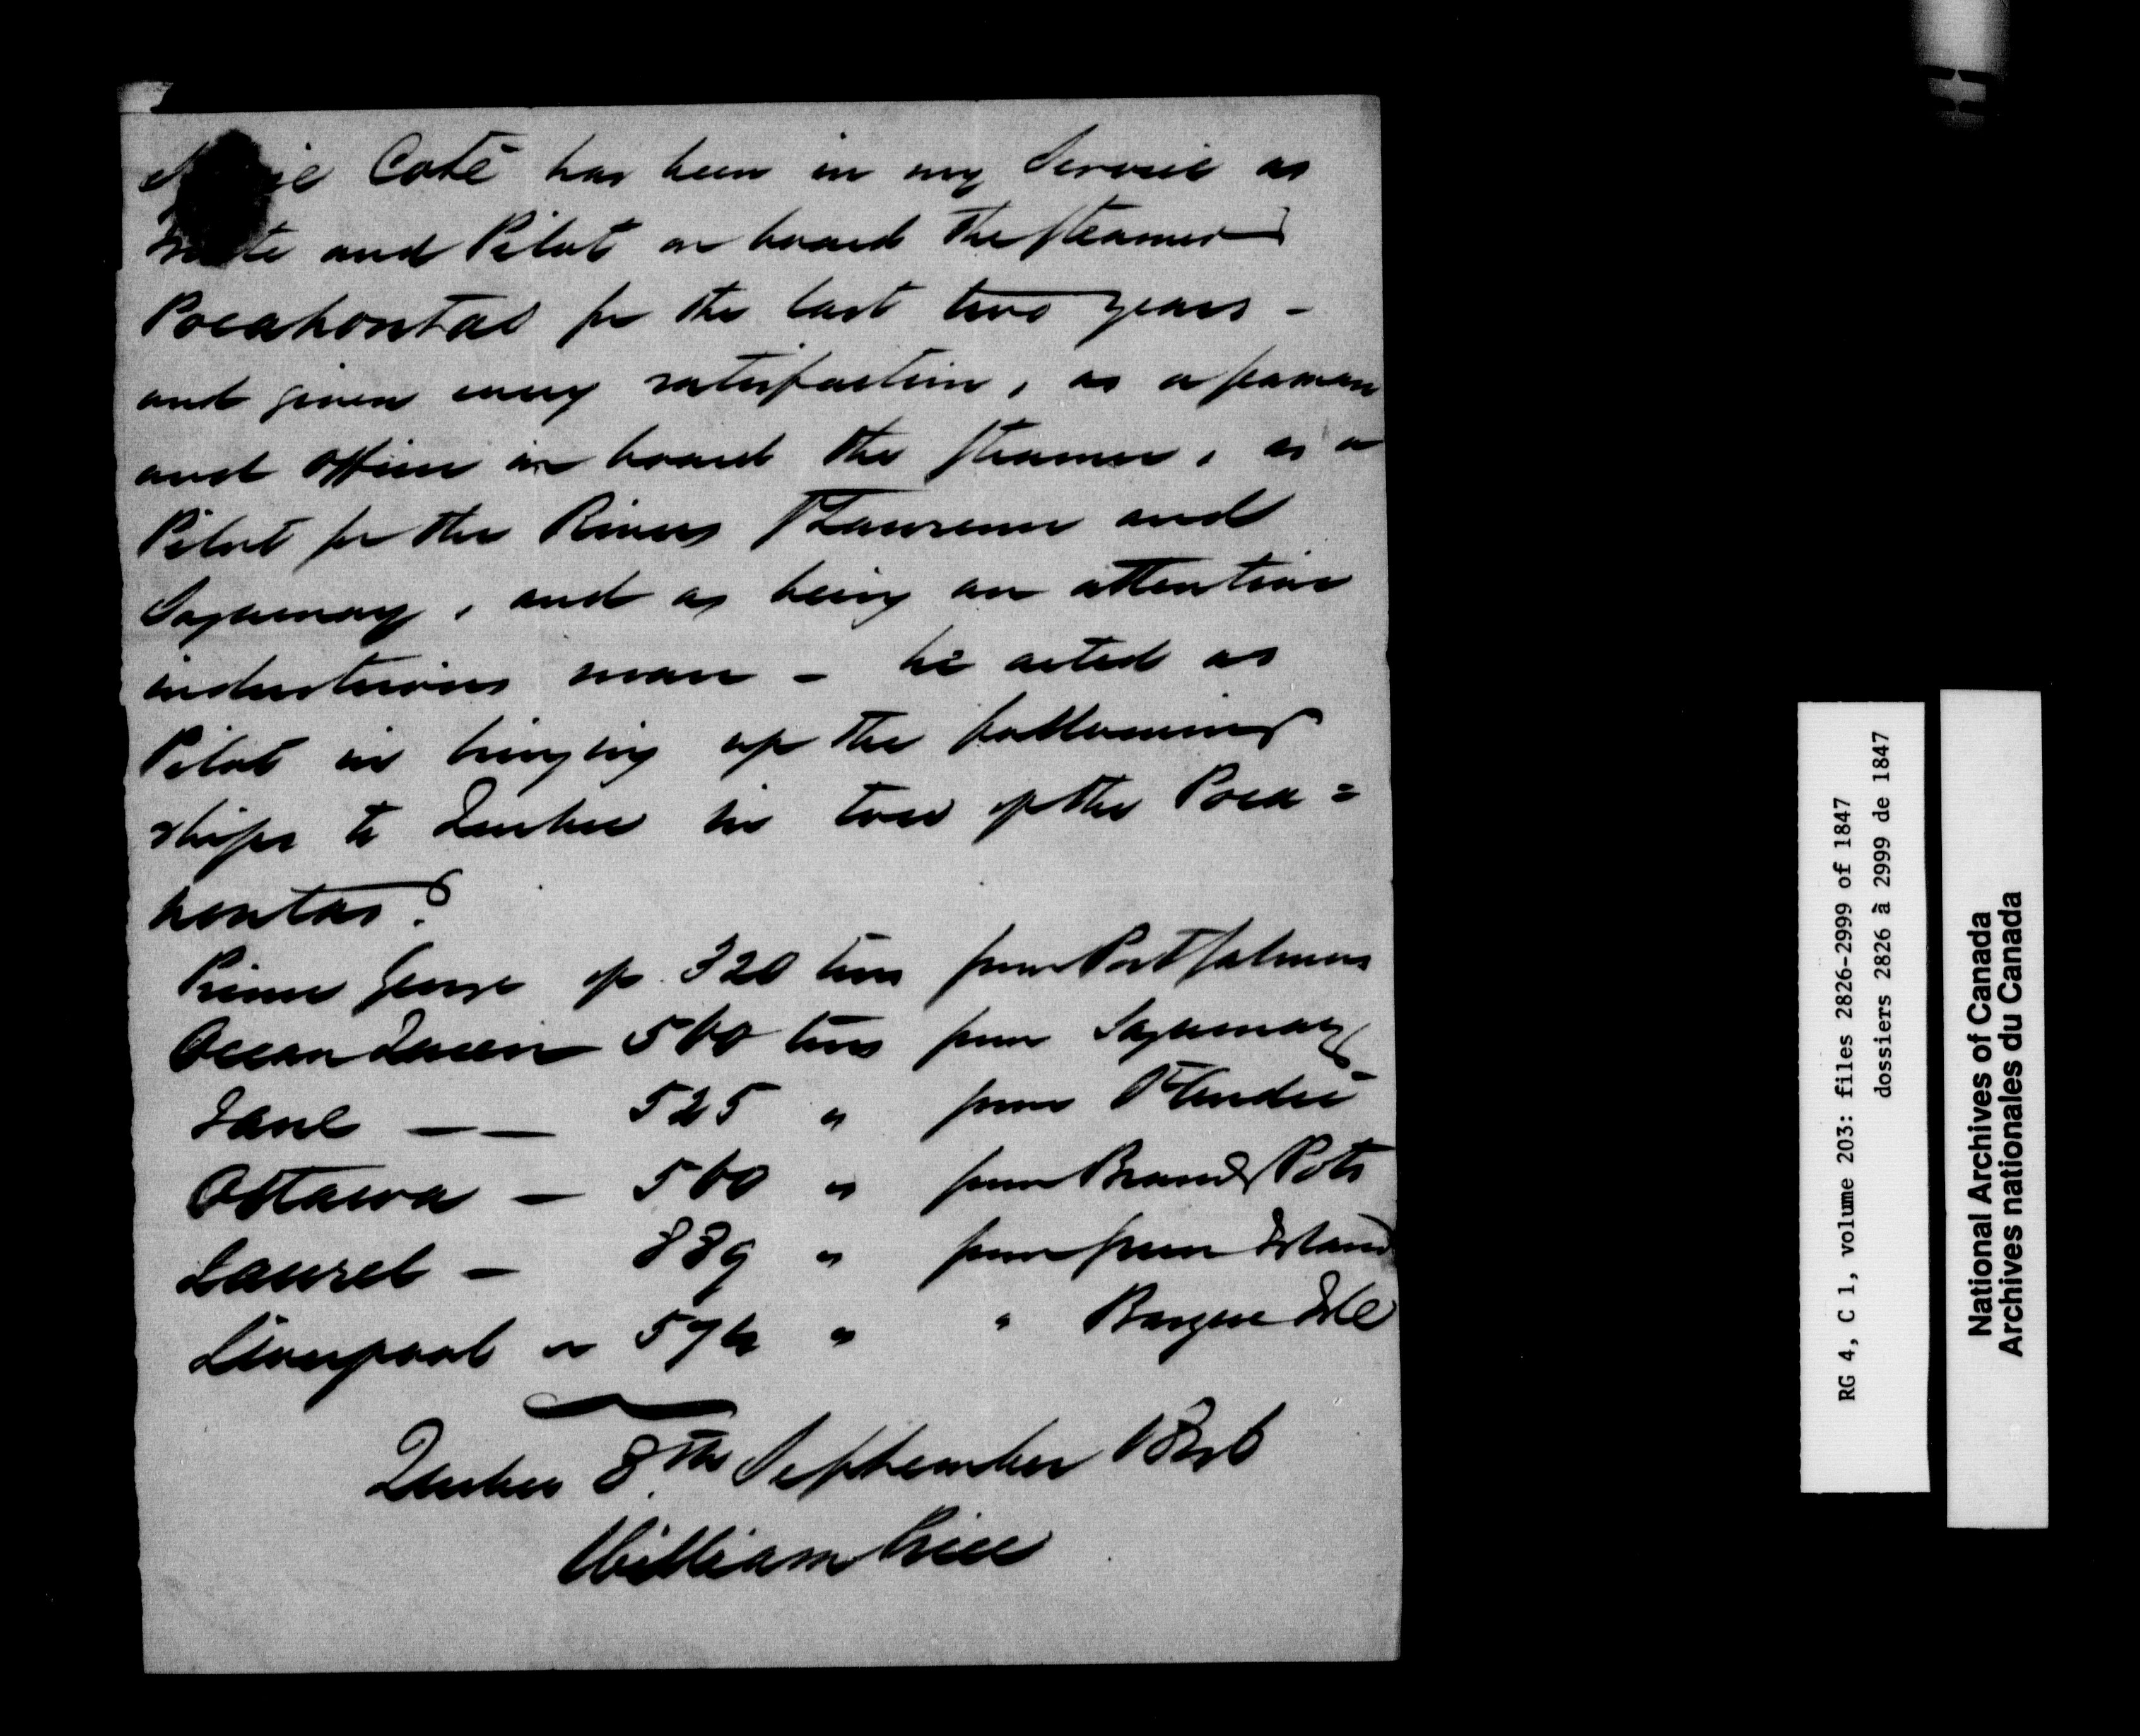 Coté has been in my Service as
and Pilot on board the Steamer
Pocahontas for the last two years -
and given every satisfaction, as a seaman
and officer on board the Steamer, as a
Pilot for the Rivers St Lawrence and
Saguenay, and as being an attentive
industrious man - he acted as
Pilot in bringing up the following
ships to Quebec in tow of the Poca=
hontas.
Prince George of 320 tons from Port
Ocean Queen 560 tons from Saguenay
Jane -- 525 " from
Ottawa - 560 " from Brandy Pots
Laurel - 889 " from Green Island
Liverpool " " " Basque Isle
Quebec 8th September
William Price
RG 4, C 1, volume 203: files 2826-2999 of 1847
dossiers 2826 à 2999 de 1847
National Archives of Canada
Archives nationales du Canada